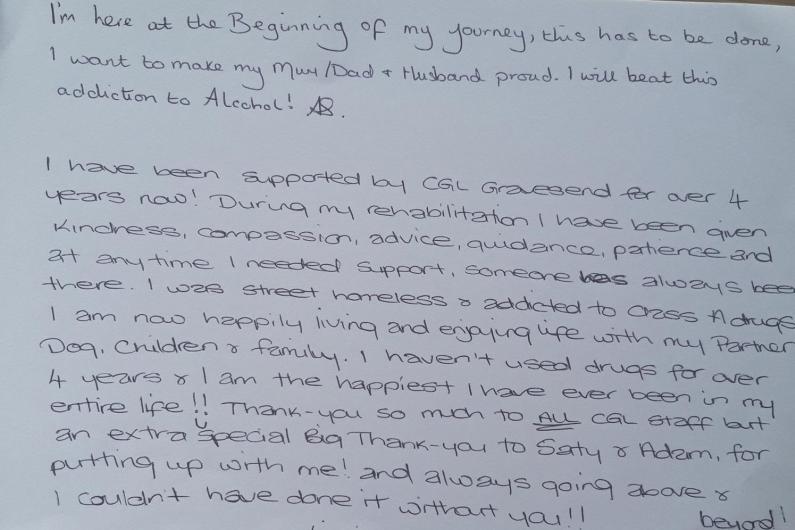 I'm here at the Beginning of my journey, this has to be done,
I want to make my Mum/Dad & Husband proud. I will beat this
addiction to Alcohol! AB.
I have been supported by CGL Gravesend for over 4
years now! During my rehabilitation I have been given
Kindness, compassion, advice, guidance, patience and
at anytime I needed support, someone has always been
there. I was street homeless & addicted to Class A drugs
I am now happily living and enjoying life with my Partner
Dog, Children & family. I haven't used drugs for over
4 years & I am the happiest I have ever been in my
entire life!! Thank-you so much to ALL CGL staff but
an extra special Big Thank-you to Saty & Adam, for
putting up with me! and always going above &
I couldn't have done it without you!! beyond!